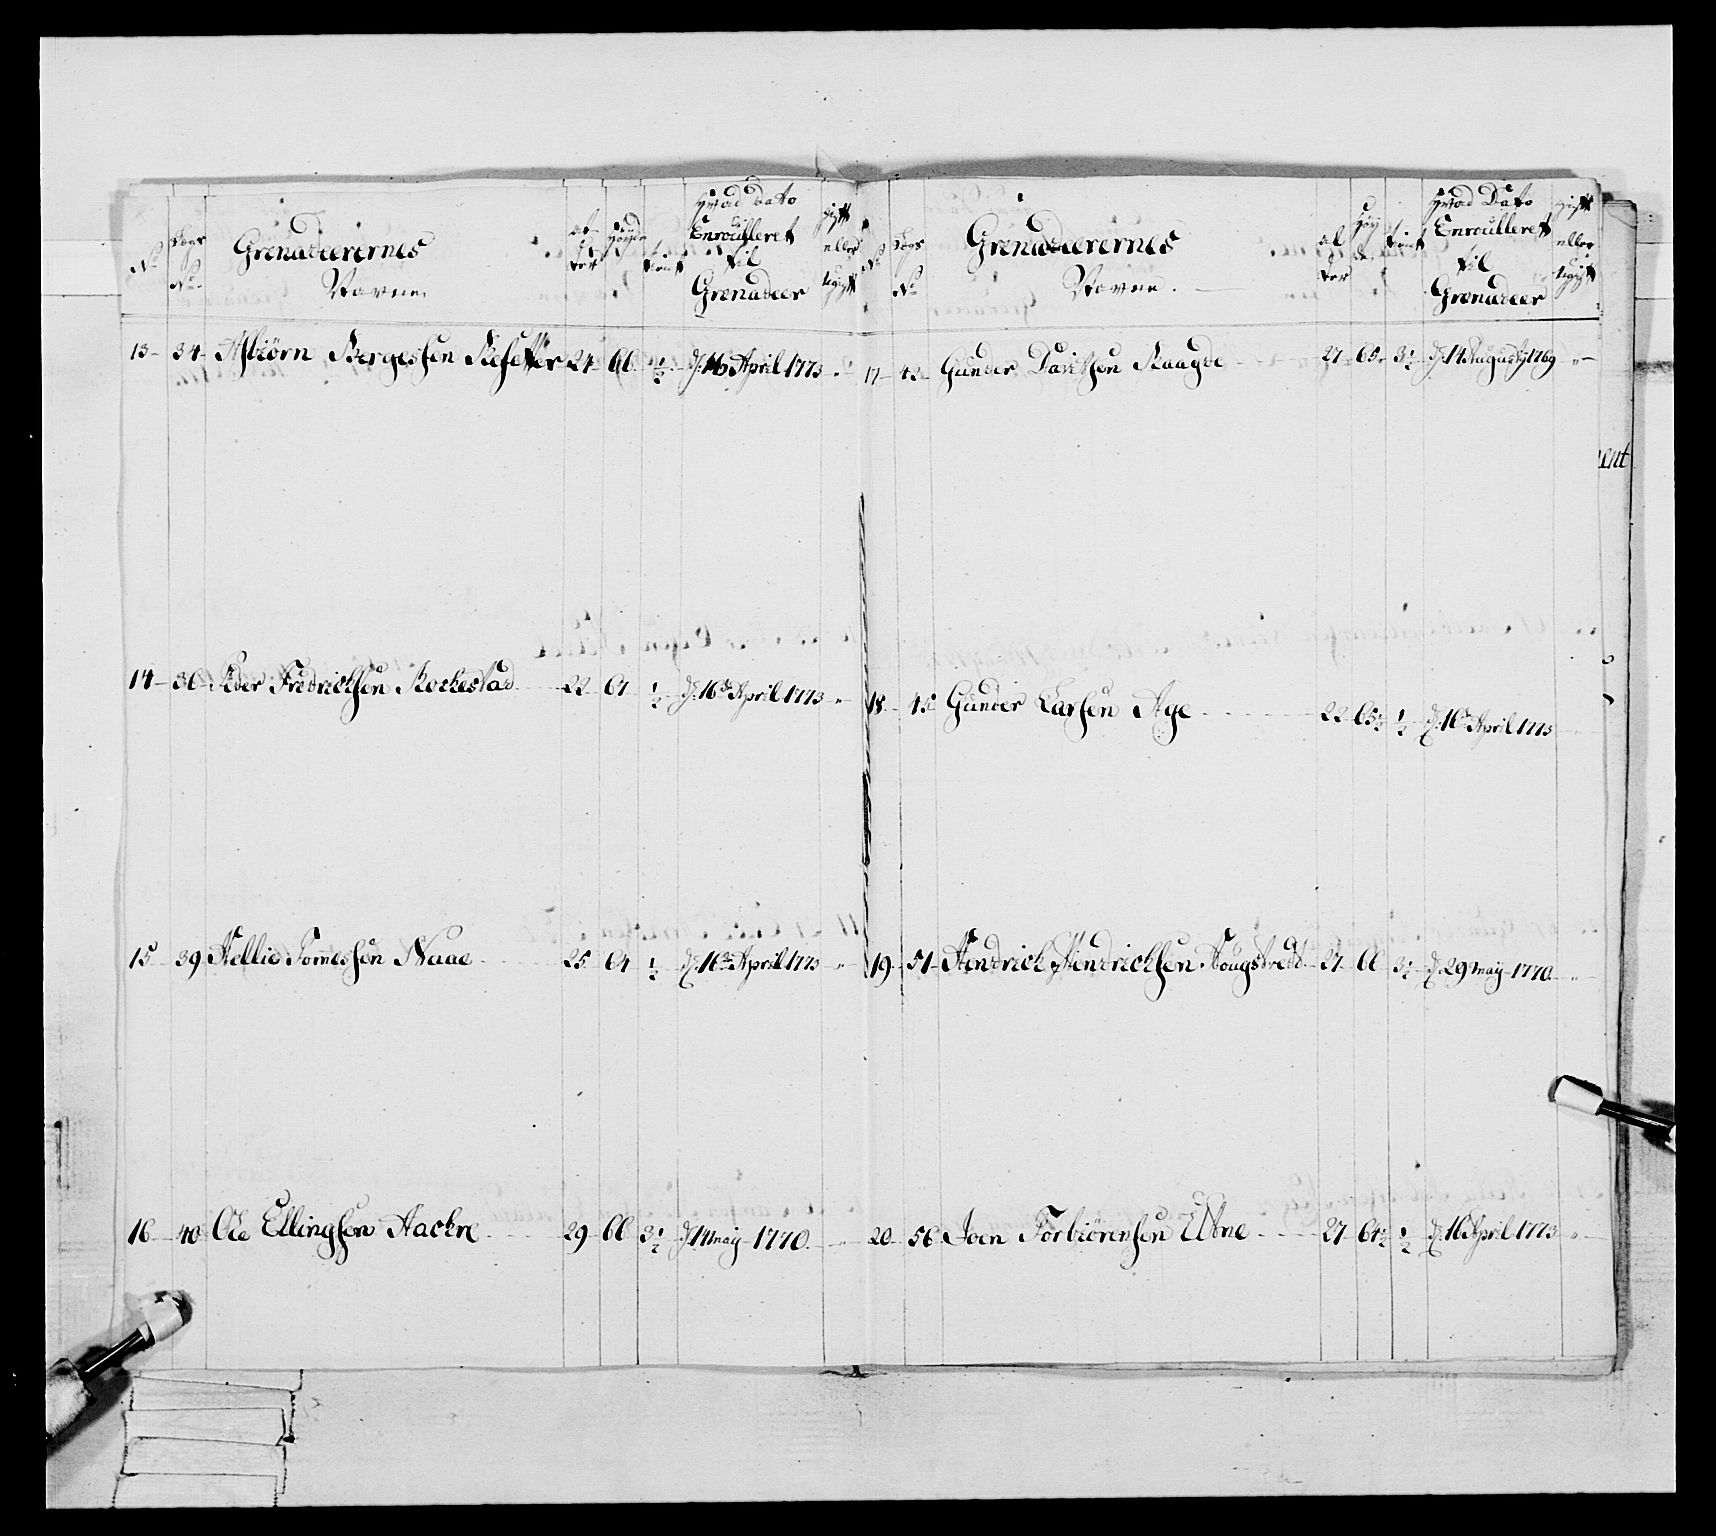 No
Lægs No
Grenadeerernes Navne.
Al-der
Høyden
tient
Hvad Dato Enroulleret til Grenadeer
gift eller ugift
13 34 Asbiørn Bergessen 24 66 1/2 d: 16 April 1773
14 36 Peder Fredrichsen Rockestad 22 61 1/2 d: 16de April 1773
15 39 Kellie Tomessen Naae 25 64 1/2 d: 16de April 1773
16 40 Ole Ellingsen Aackre 29 66 3 1/2 d: 14 may 1770
No
Lægs No
Grenadeerernes Navne.
Al der
Høy de
tient
Hvad Dato Enroulleret til Grenadeer
gift eller ugift
17 42 Gunder Davidsen Raagde 27 65 3 1/2 d: 14 August 1769
18 45 Gunder Larsen Age 22 65 1/2 1/2 d: 16de April 1773
19 51 Hendrich Hendrichsen 27 66 3 1/2 d: 29 may 1770
20 56 Joen Torbiørensen Ebne 27 64 1/2 1/2 d: 16 April 1773
ent